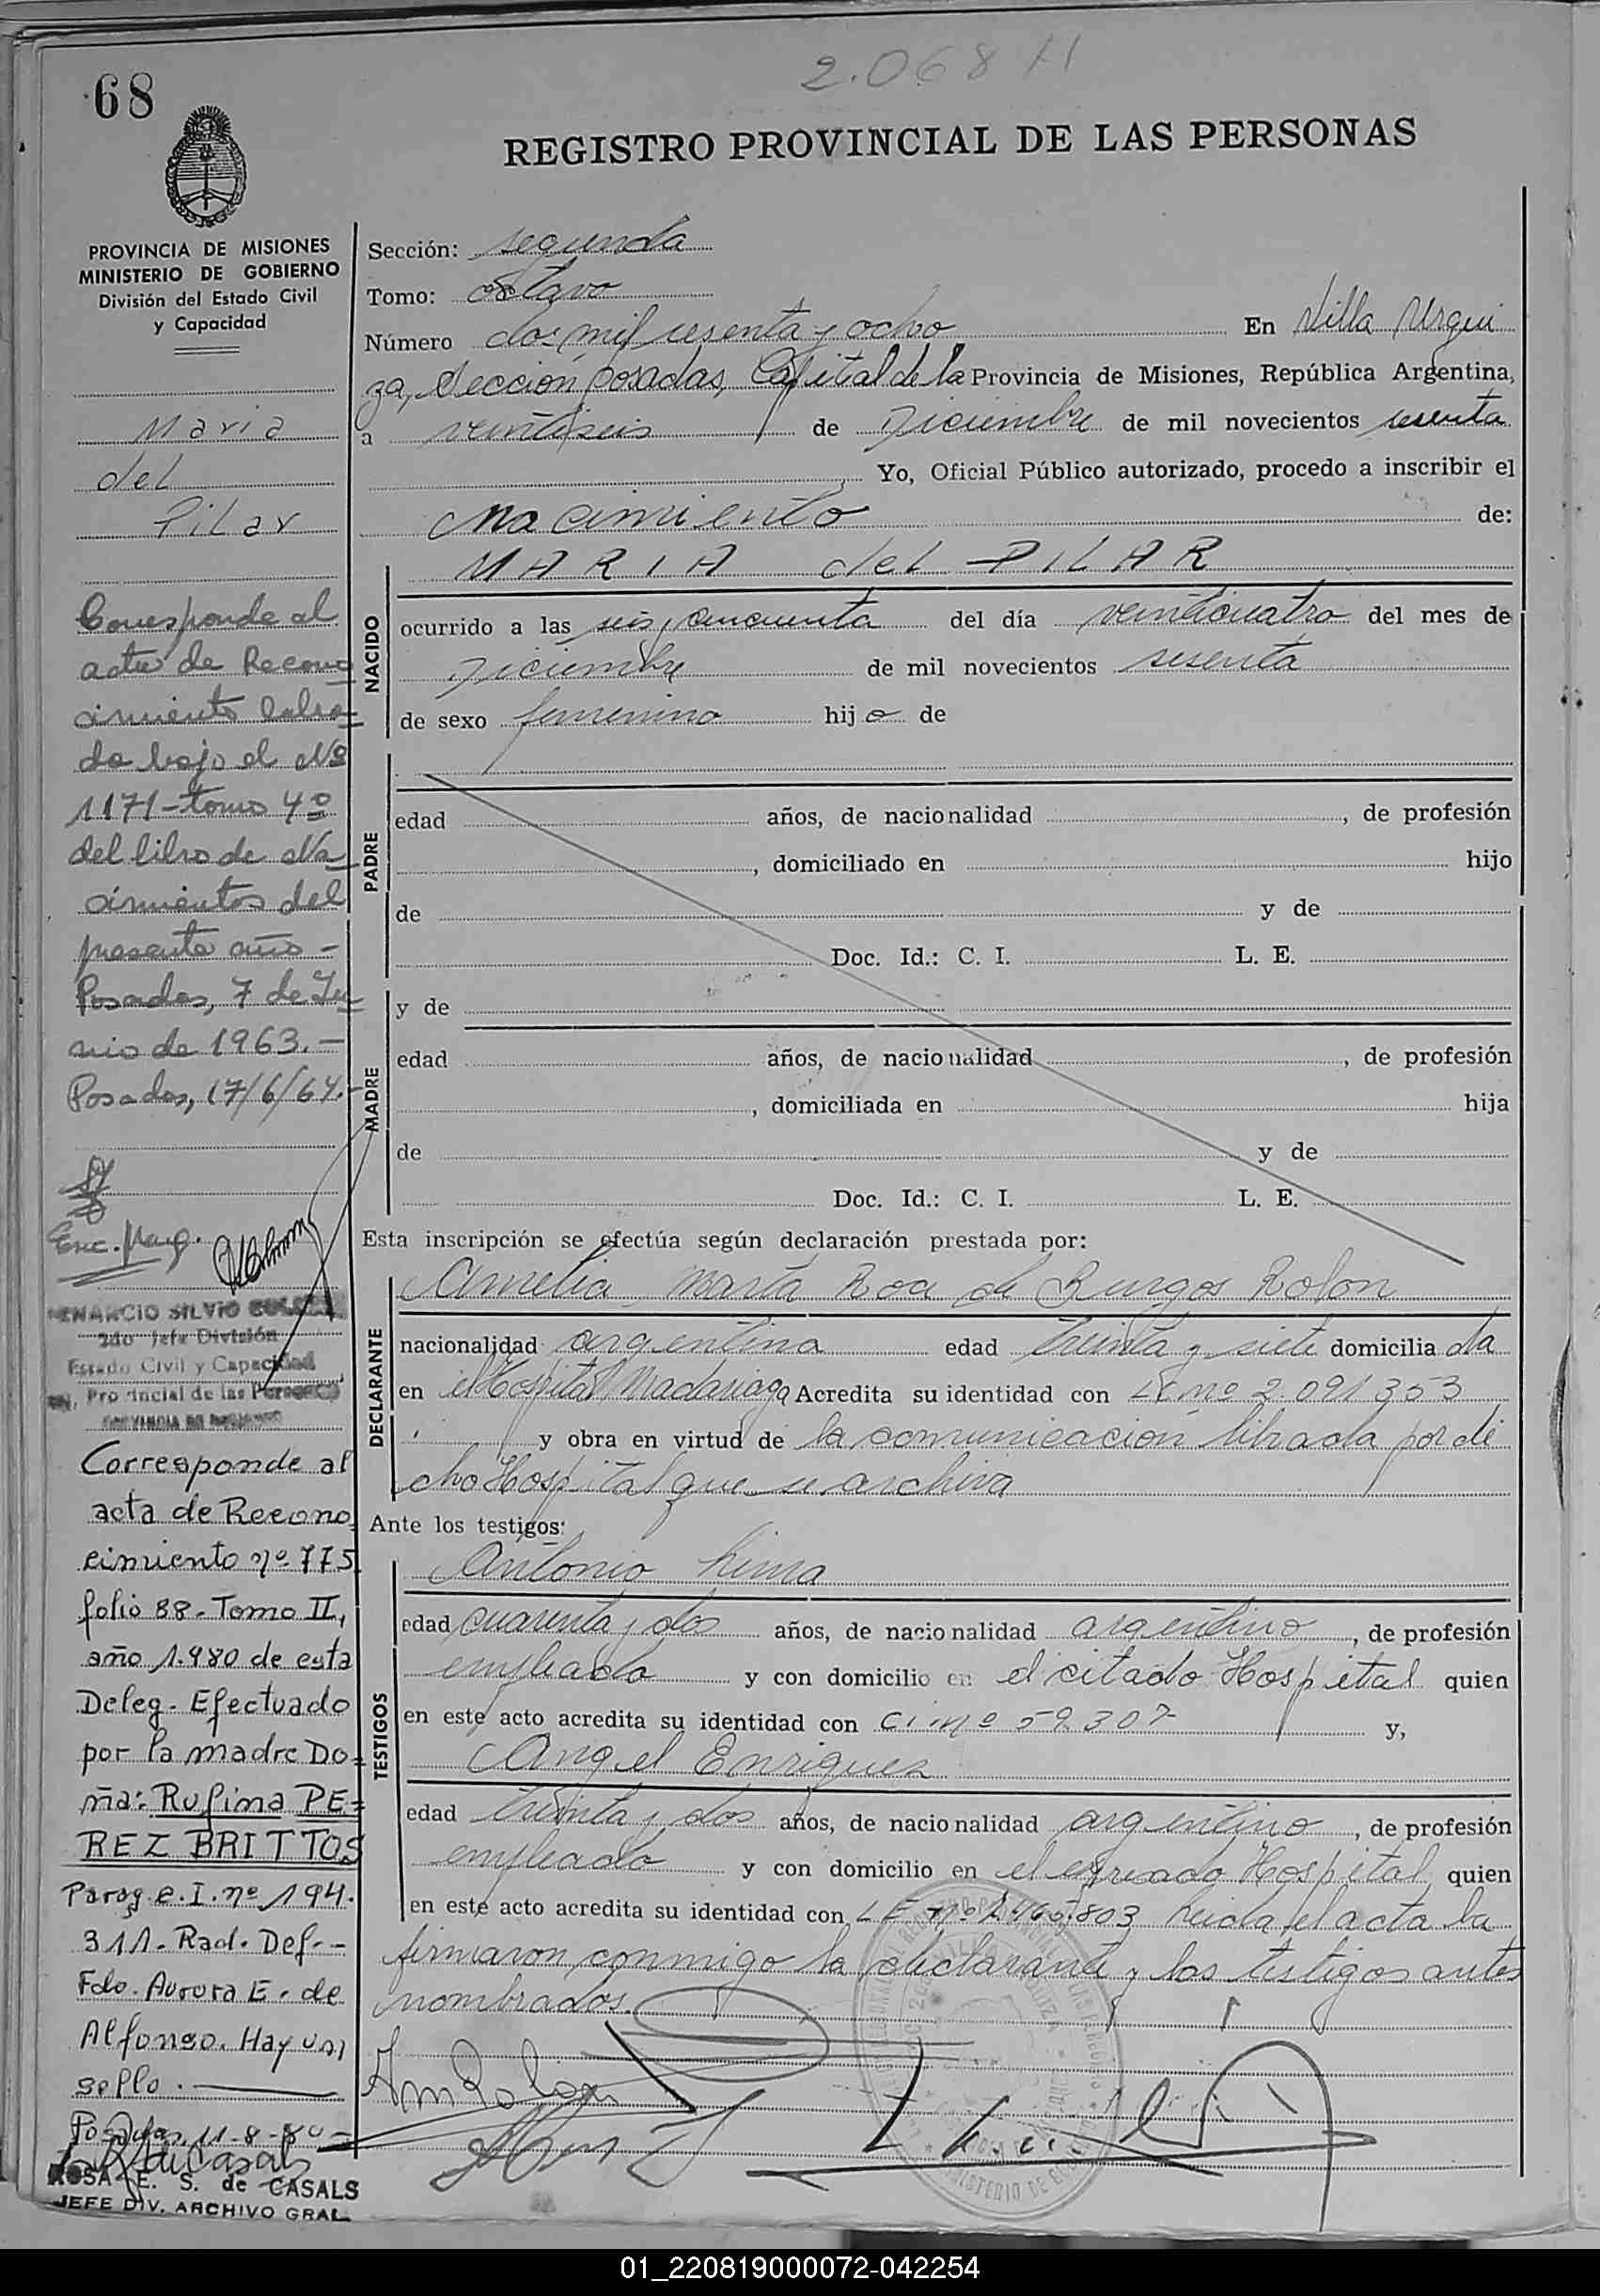 2.068 H
68
REGISTRO PROVINCIAL DE LAS PERSONAS
PROVINCIA DE MISIONES
MINISTERIO DE GOBIERNO
División del Estado Civil
y Capacidad
Maria
del
Pilar
Corresponde al
acta de Recono
cimiento labra=
da bajo el Nº
1171-tomo 4º
del libro de Na
cimientos del
presente año -
Posadas, 7 de Ju
nio de 1963.-
Posados, 17/6/64.-
Enc.
SILVIO
2do Jefe División
Estado Civil y Capacidad
Provincial de las Personas
PROVINCIA DE MISIONES
Corresponde al
acta de Recono
cimiento nº 775
folio 88-Tomo II,
año 1.980 de esta
Deleg. Efectuado
por la madre Do=
ña: Rufima PE=
REZ BRITTOS
Parag. e. I. nº 194.
311. Rad. Def.-
Fdo. Aurora E. de
Alfonso. Hay un
sello.
Posadas, 11-8-80-
ROSA E. S. de CASALS
JEFE DIV. ARCHIVO GRAL
Sección: segunda
Tomo: octavo
Número dos mil sesenta y ocho En Villa Urqui
za, Sección posadas, Capital de la Provincia de Misiones, República Argentina,
a veintiseis de Diciembre de mil novecientos sesenta
Yo, Oficial Público autorizado, procedo a inscribir el
Nacimiento de:
MARIA del PILAR
NACIDO
ocurrido a las seis, cincuenta del día veinticuatro del mes de
Diciembre de mil novecientos sesenta
de sexo femenino hija de
PADRE
edad años, de nacionalidad , de profesión
, domiciliado en hijo
de y de
Doc. Id.: C. I. L. E.
MADRE
y de
edad años, de nacionalidad , de profesión
, domiciliada en hija
de y de
Doc. Id.: C. I. L. E.
Esta inscripción se efectúa según declaración prestada por:
DECLARANTE
Amelia Marta Roa de Burgos Rolon
nacionalidad argentina edad treinta y siete domicilia da
en el Hospital Madariaga Acredita su identidad con LC nº 2.091353
y obra en virtud de la comunicación librada por di
cho Hospital que se archiva
Ante los testigos:
TESTIGOS
Antonio Lima
edad cuarenta y dos años, de nacionalidad argentino, de profesión
empleado y con domicilio en el citado Hospital quien
en este acto acredita su identidad con CI nº 59.307 y,
Angel Enriquez
edad treinta y dos años, de nacionalidad argentino, de profesión
empleado y con domicilio en el Hospital quien
en este acto acredita su identidad con LE nº Leida el acta la
firmaron conmigo la declarante y los testigos antes
nombrados.
01_220819000072-042254